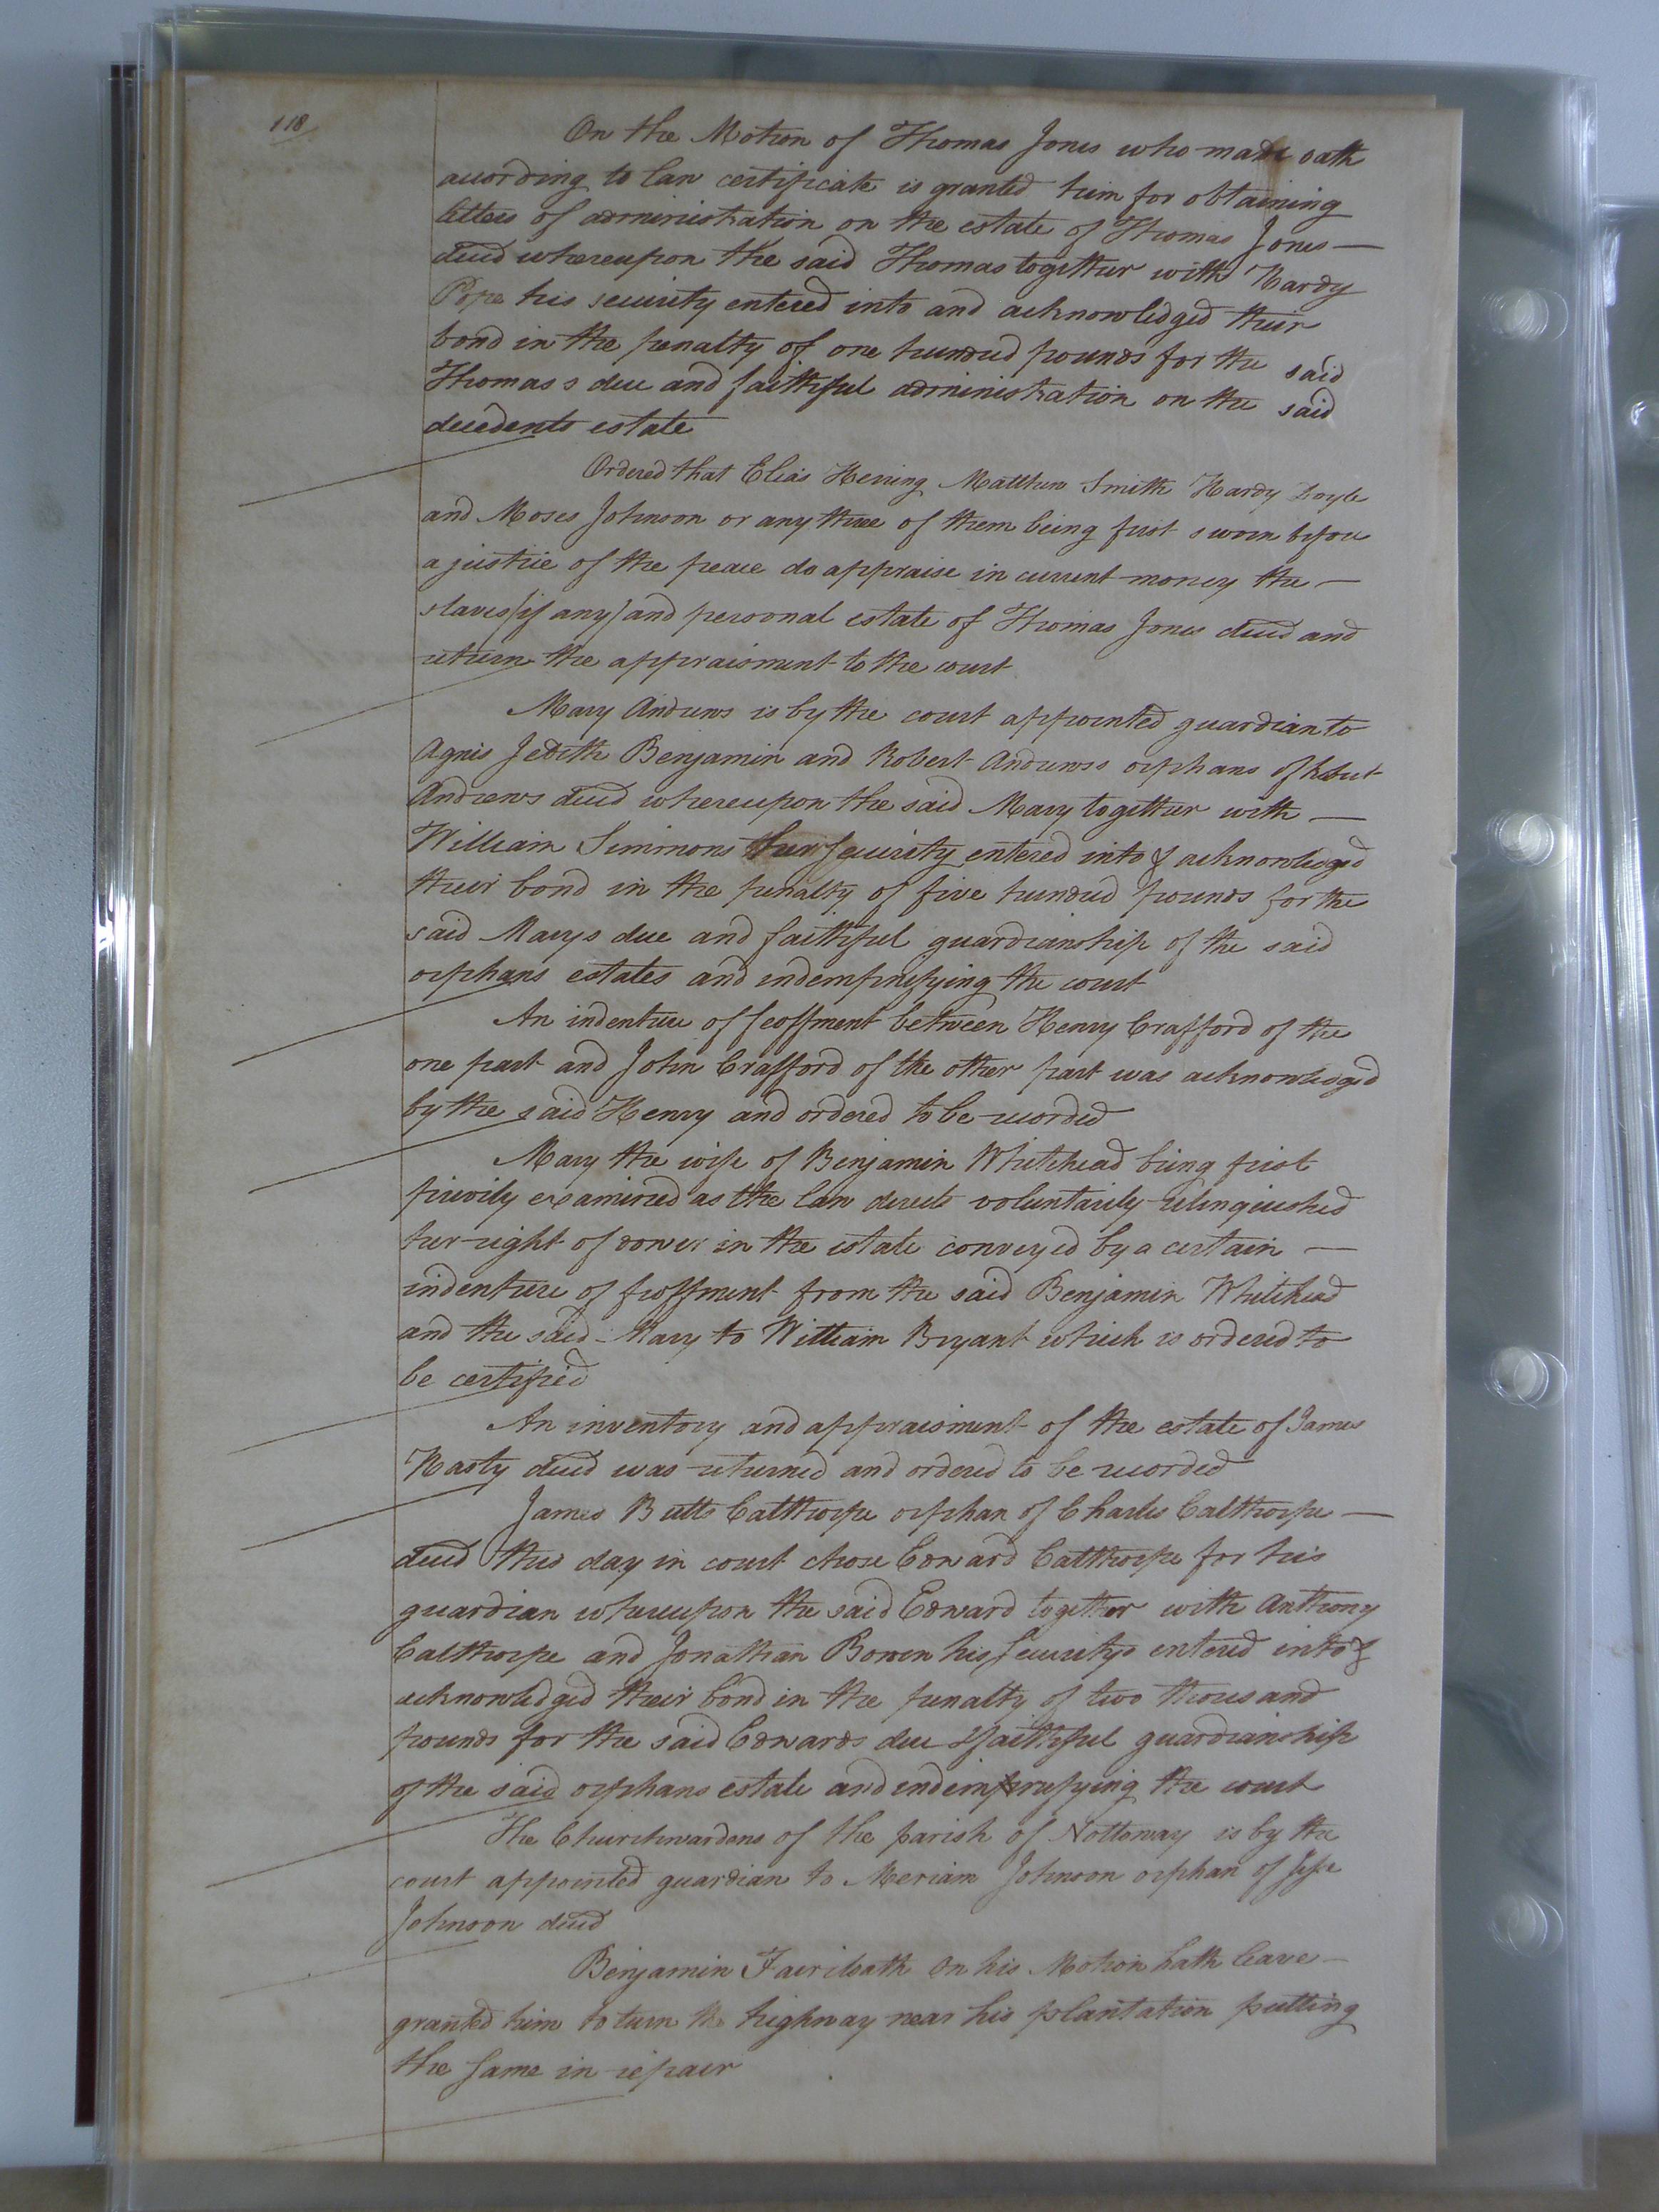 118
On the Motion of Thomas Jones who made oath
according to law certificate is granted him for obtaining
letters of administration on the estate of Thomas Jones —
decd whereupon the said Thomas together with Hardy
Pope his security entered into and acknowledged their
bond in the penalty of one hundred pounds for the said
Thomas s due and faithful administration on the said
decedents estate
Ordered that Elias Herring Matthew Smith Hardy Doyle
and Moses Johnson or any three of them being first sworn before
a justice of the peace do appraise in current money the —
slaves (if any) and personal estate of Thomas Jones decd and
return the appraisment to the court
Mary Andrews is by the court appointed guardian to
Agnis Jedith Benjamin and Robert Andrewss orphans of Robert
Andrews decd whereupon the said Mary together with —
William Simmons her security entered into & acknowledged
their bond in the penalty of five hundred pounds for the
said Marys due and faithful guardianship of the said
orphans estates and indempnifying the court
An indenture of feoffment between Henry Crafford of the
one part and John Crafford of the other part was acknowledged
by the said Henry and ordered to be recorded
Mary the wife of Benjamin Whitehead being first
privily examined as the law directs voluntarily relinquished
her right of dower in the estate conveyed by a certain —
indenture of feoffment from the said Benjamin Whitehead
and the said Mary to William Bryant which is ordered to
be certified
An inventory and appraisment of the estate of James
Hasty decd was returned and ordered to be recorded
James Butts Calthorpe orphan of Charles Calthorpe —
decd this day in court chose Edward Calthorpe for his
guardian whereupon the said Edward together with Anthony
Calthorpe and Jonathan Bowen his securitys entered into &
acknowledged their bond in the penalty of two thousand
pounds for the said Edwards due & faithful guardianship
of the said orphans estate and indempnifying the court
The Churchwardens of the parish of Nottoway is by the
court appointed guardian to Meriam Johnson orphan of Jesse
Johnson decd
Benjamin Faircloath on his Motion hath leave —
granted him to turn the highway near his plantation putting
the same in repair